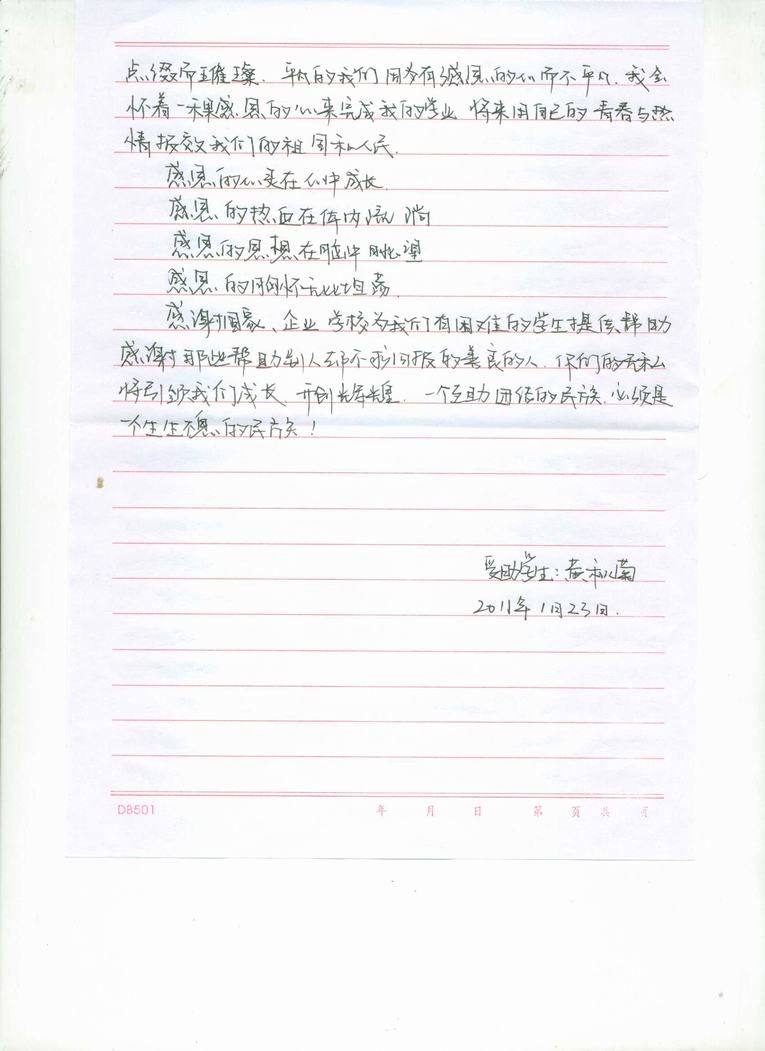 点缀而璀璨. 平凡的我们因为有感恩的心而不平凡. 我会
怀着一棵感恩的心来完成我的学业 将来用自己的青春与热
情报效我们的祖国和人民.
感恩的心灵在心中成长
感恩的热血在体内流淌
感恩的思想在脑中眺望
感恩的胸怀无比坦荡.
感谢国家、企业 学校为我们有困难的学生提供帮助
感谢那些帮助别人却不求回报的善良的人. 你们的无私
将引领我们成长、开创辉煌. 一个互助团结的民族. 必须是
一个生生不息的民族！
受助学生：黄秋菊
2011年1月23日.
DB501 年 月 日 第 页 共 页